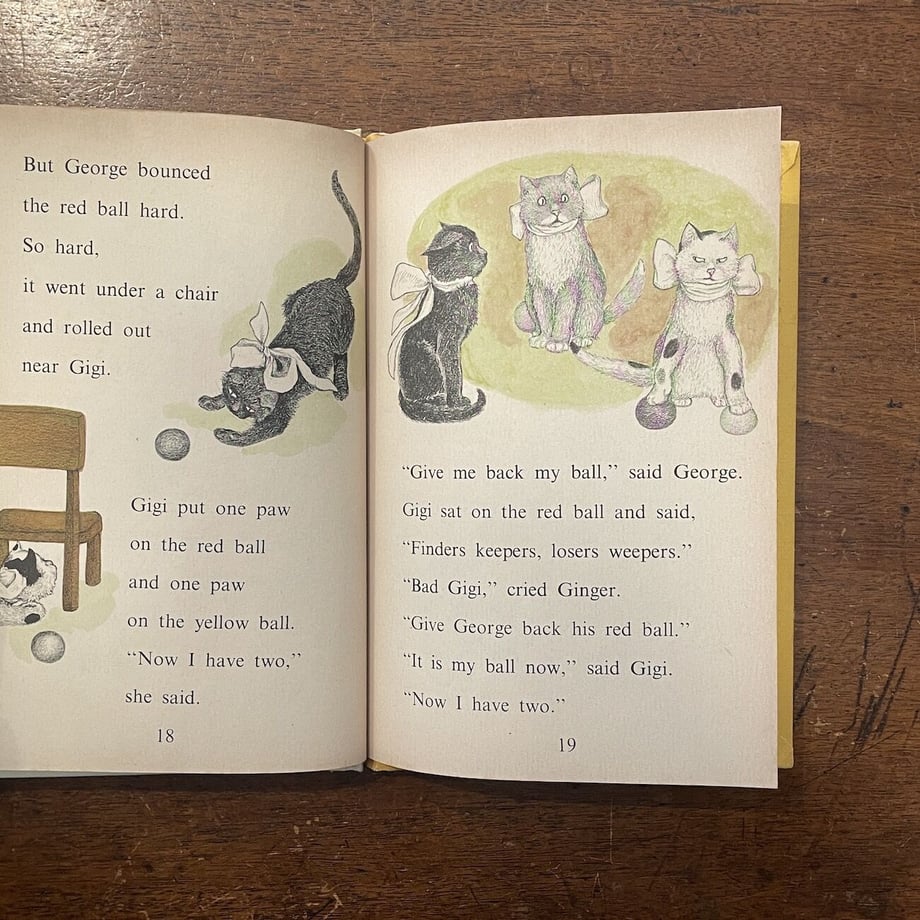 But George bounced
the red ball hard.
So hard,
it went under a chair
and rolled out
near Gigi.
Gigi put one paw
on the red ball
and one paw
on the yellow ball.
“Now I have two,”
she said.
18
“Give me back my ball,” said George.
Gigi sat on the red ball and said,
“Finders keepers, losers weepers.”
“Bad Gigi,” cried Ginger.
“Give George back his red ball.”
“It is my ball now,” said Gigi.
“Now I have two.”
19